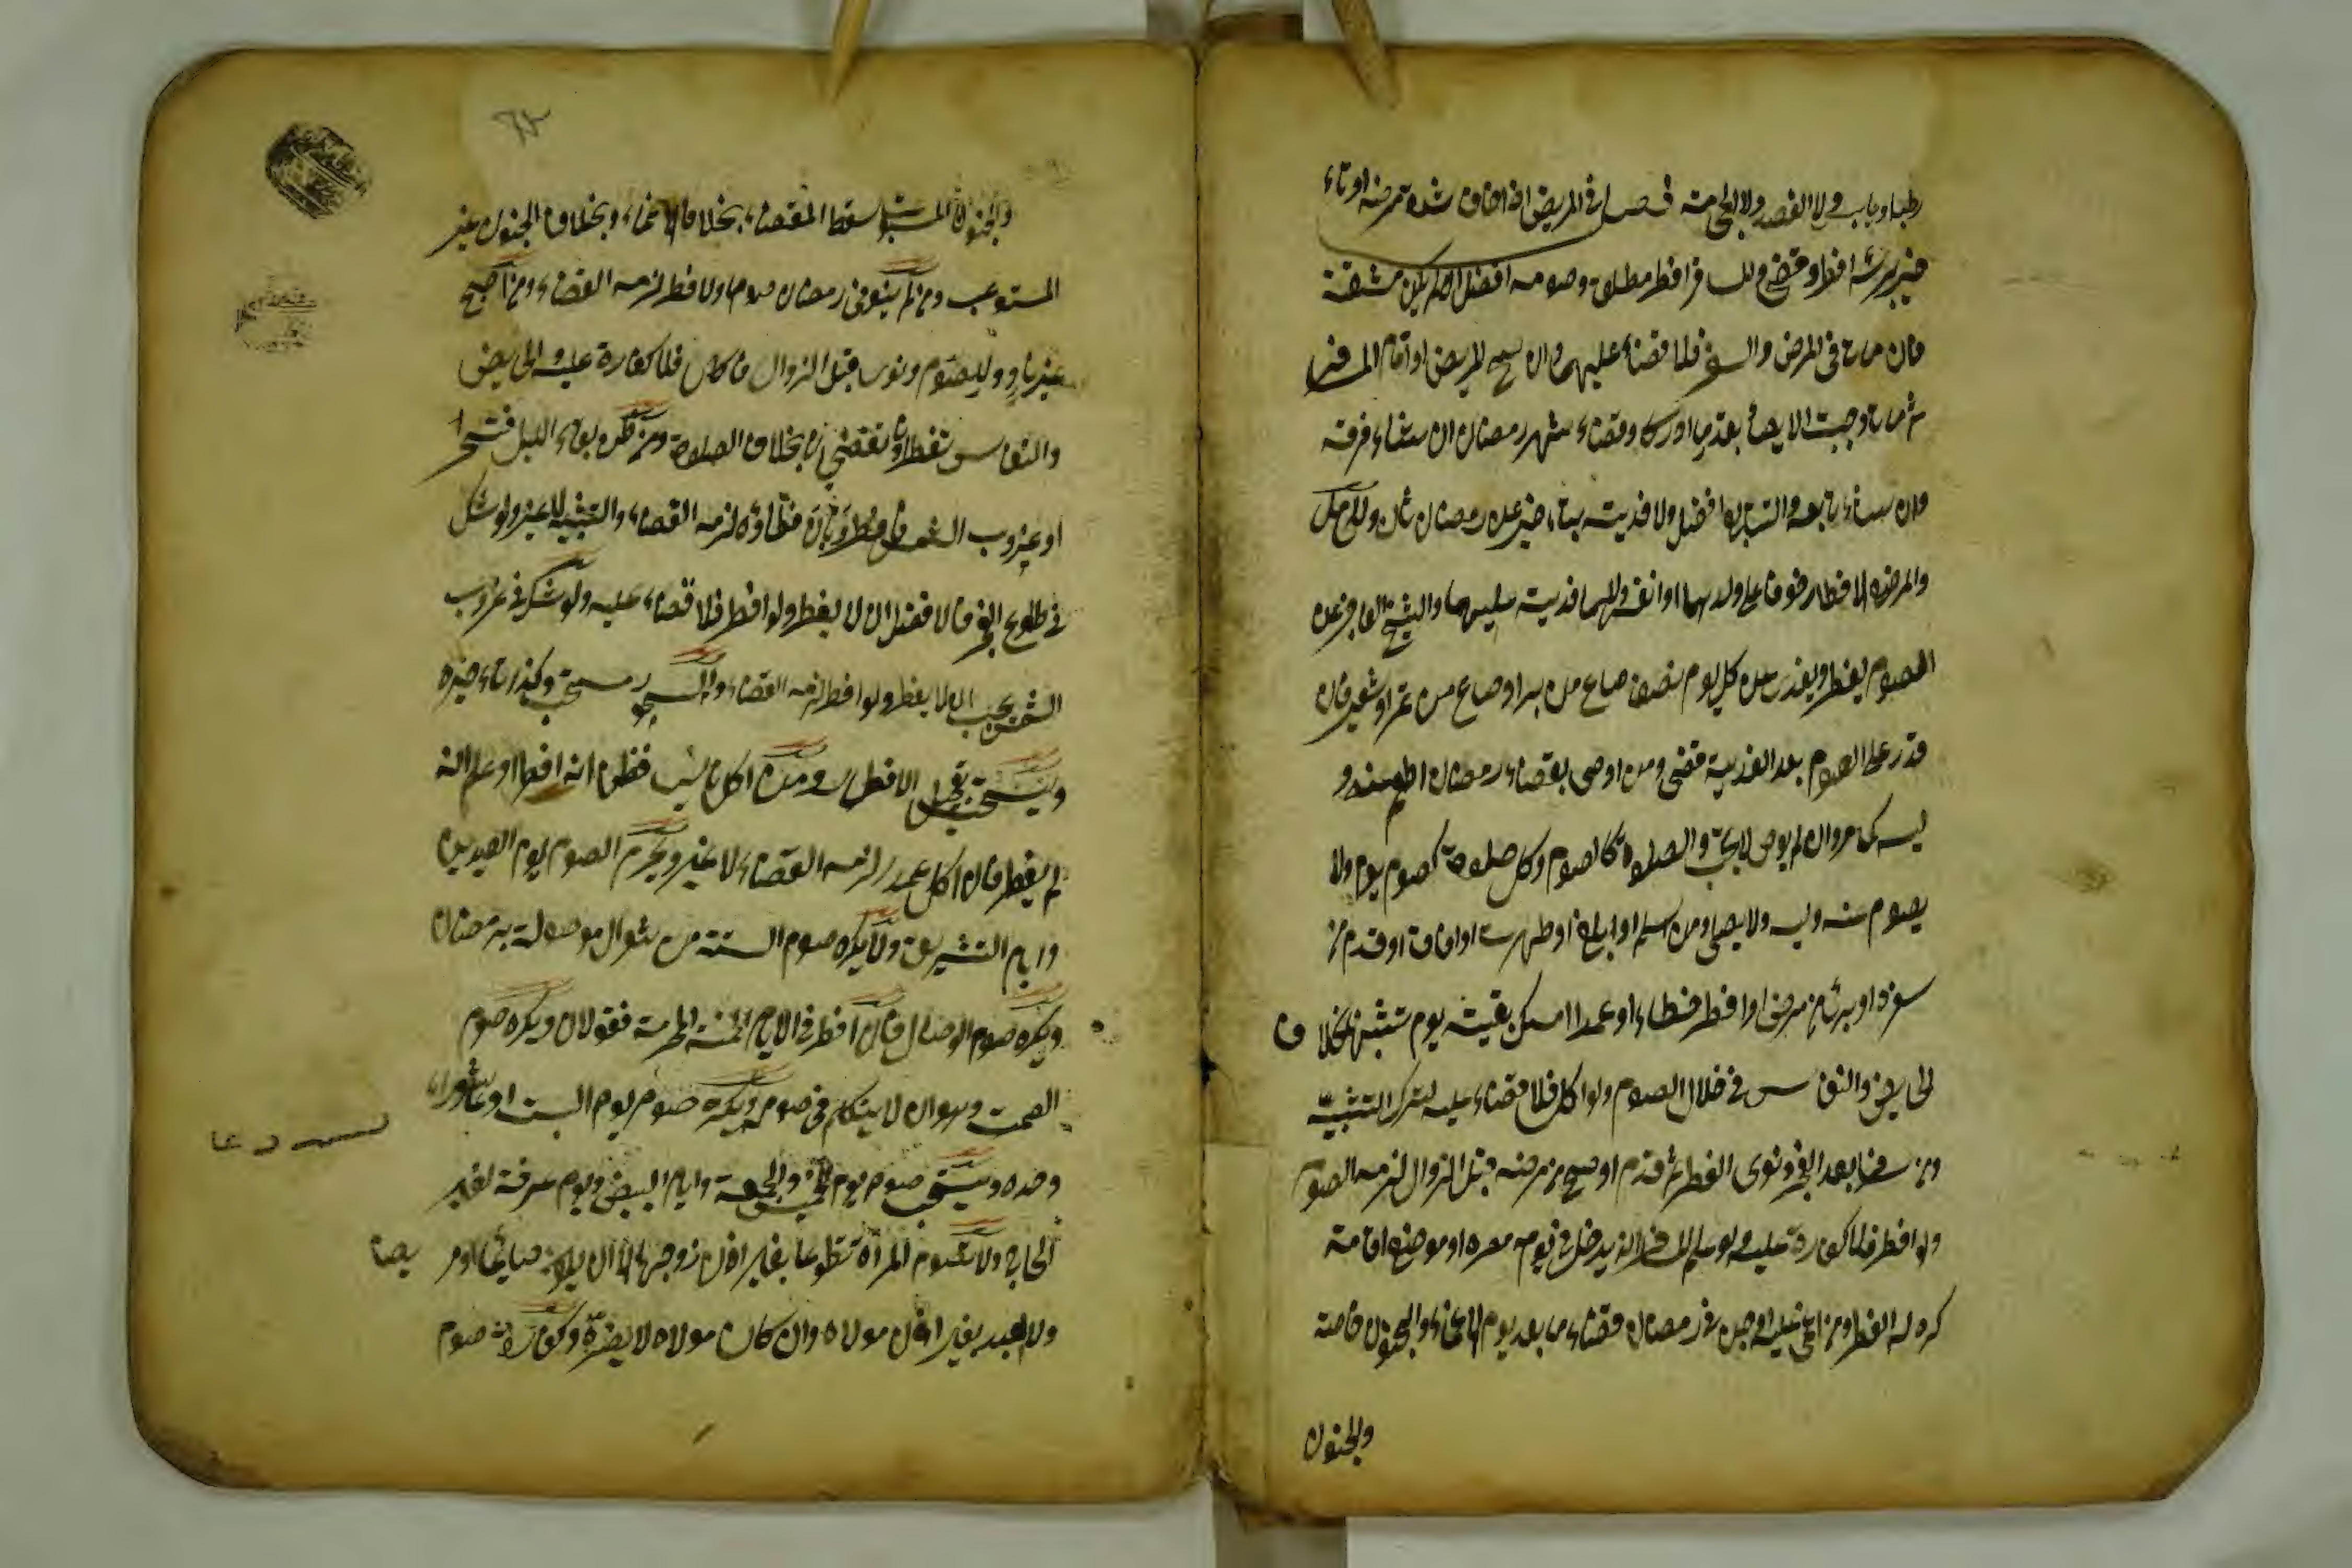 رطبا او يابسا ولا الفصد ولا الحجامة فصل في المريض اذا خاف شدة مرضه او تاخر
برئه افطر وقضى والمسافر افطر مطلقا وصومه افضل اذا لم يكن مشقة
فان ماتا في المرض والسفر فلا قضاء عليهما وان صح المريض او اقام المسافر
ثم ماتا وجبت الايصاء بقدر ما ادركا وقضاء شهر رمضان ان شاء فرقه
وان شاء تابعه والتتابع افضل ولا فدية بتاخيره عن رمضان ثان وللحامل
والمرضع الافطار خوفا على ولدهما او انفسهما ولا فدية عليهما والشيخ العاجز عن
الصوم يفطر ويفدي عن كل يوم نصف صاع من بر او صاع من تمر او شعير فان
قدر على الصوم بعد الفدية قضى ومن اوصى بقضاء رمضان اطعم عنه و
ليه كما مر وان لم يوص لا يجب والصلوة كالصوم وكل صلوة كصوم يوم ولا
يصوم عنه وليه ولا يصلي ومن اسلم او بلغ او طهرت او افاق او قدم من
سفره او برئ من مرض او افطر خطاء او عمدا امسك بقية يوم تشبها بخلاف
الحايض والنفاس في خلال الصوم ولو اكل فلا قضاء عليه لترك التشبيه
ومن سافر بعد الفجر ونوى الفطر ثم قدم او صح من مرضه قبل الزوال لزمه الصوم
ولو افطر فلا كفارة عليه ولو علم المسافر انه يدخل في يومه مصره او موضع اقامة
كره له الفطر ومن اغمي عليه او جن في رمضان قضاء ما بعد يوم الاغماء والجنون خاصة
والجنون
والجنون المستوعب يسقط القضاء بخلاف الاغماء وبخلاف الجنون غير
المستوعب ومن لم ينو في رمضان صوما ولا فطر لزمه القضاء ومن اصبح
غير ناو للصوم ونوى قبل الزوال فاكل فلا كفارة عليه الحايض
والنفاس تفطر وتقضي بخلاف الصلوة ومن ظن بقاء الليل فتسحر
او غروب الشمس فافطر وبان خطاؤه لزمه القضاء والتشبيه لا غير ولو شك
في طلوع الفجر فالافضل ان لا يفطر ولو افطر فلا قضاء عليه ولو شك في غروب
الشمس يجب ان لا يفطر ولو افطر لزمه القضاء والسحور مستحب وكذا تاخيره
ويستحب تعجيل الافطار ومن اكل ناسيا فظن انه افطر او علم انه
لم يفطر فان اكل عمدا لزمه القضاء لا غير ويحرم الصوم يوم العيدين
وايام التشريق ولا يكره صوم الستة من شوال موصولة برمضان
ويكره صوم الوصال فان افطر في الايام الخمسة المحرمة فقولان ويكره صوم
الصمت وهو ان لا يتكلم في صومه ويكره صوم يوم السبت او عاشوراء
وحده ويستحب صوم يوم الخميس والجمعة وايام البيض ويوم عرفة لغير
الحاج ولا تصوم المرأة تطوعا بغير اذن زوجها الا ان يكون صايما او مر
يضا
ولا العبد بغير اذن مولاه وان كان مولاه لا يضره صوم